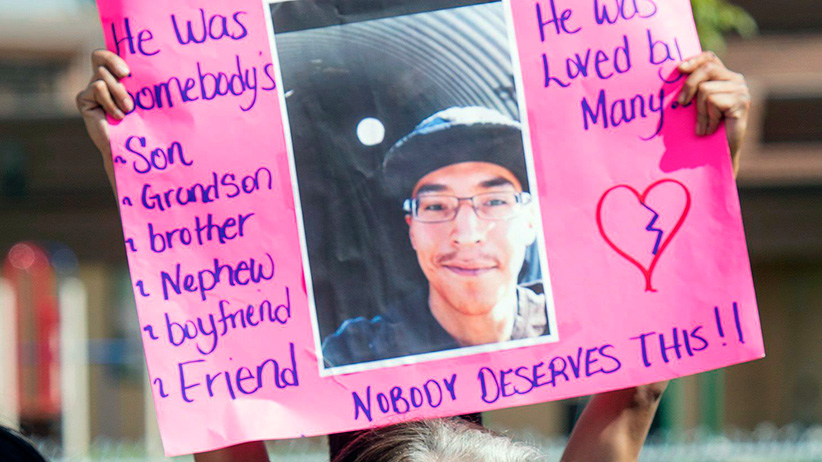 He Was
Somebody's
~Son
~Grandson
~brother
~Nephew
~boyfriend
~Friend
He was
Loved by
Many.
NOBODY DESERVES THIS!!